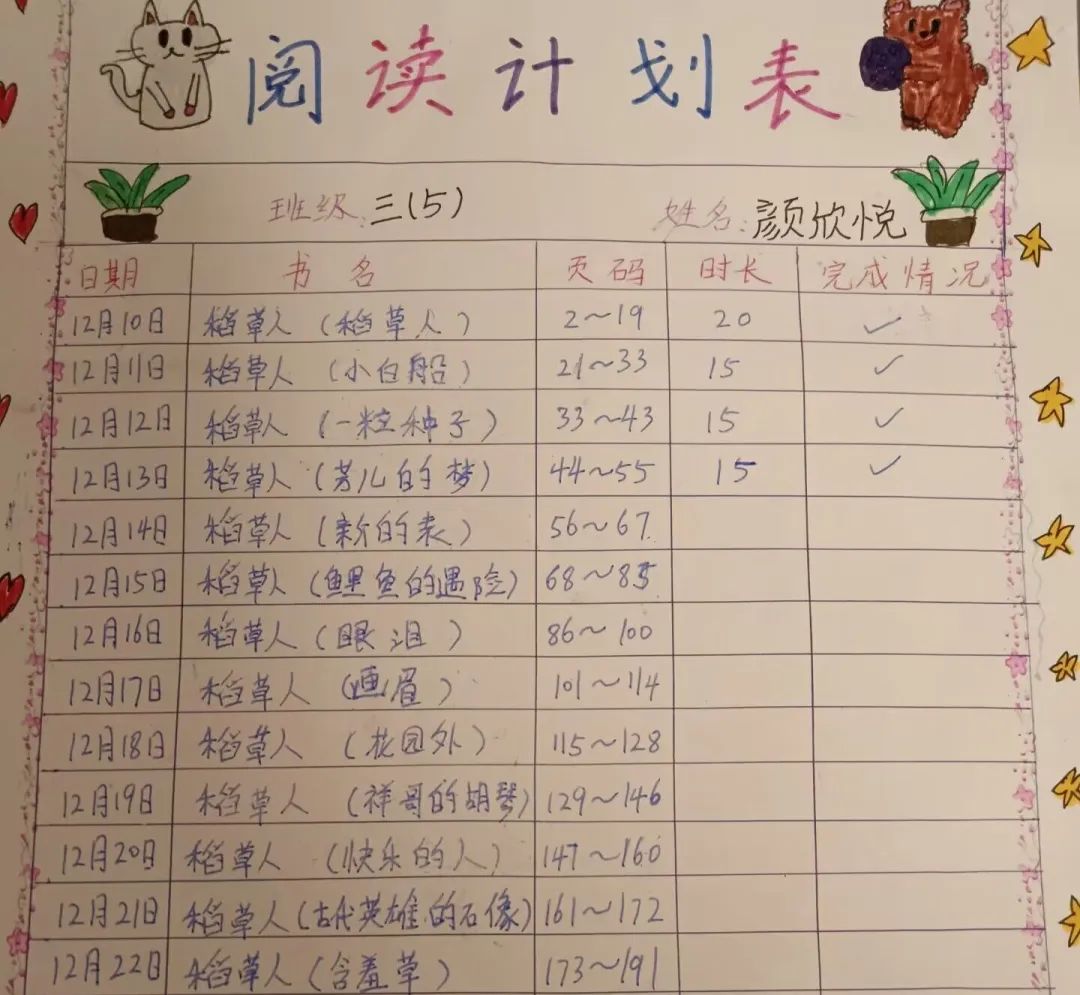 阅读计划表
班级:三(5) 姓名:颜欣悦
日期 书名 页码 时长 完成情况
12月10日 稻草人(稻草人) 2～19 20 ✓
12月11日 稻草人(小白船) 21～33 15 ✓
12月12日 稻草人(一粒种子) 33～43 15 ✓
12月13日 稻草人(芳儿的梦) 44～55 15 ✓
12月14日 稻草人(新的表) 56～67
12月15日 稻草人(鲤鱼的遇险) 68～85
12月16日 稻草人(眼泪) 86～100
12月17日 稻草人(画眉) 101～114
12月18日 稻草人(花园外) 115～128
12月19日 稻草人(祥哥的胡琴) 129～146
12月20日 稻草人(快乐的人) 147～160
12月21日 稻草人(古代英雄的石像) 161～172
12月22日 稻草人(含羞草) 173～191